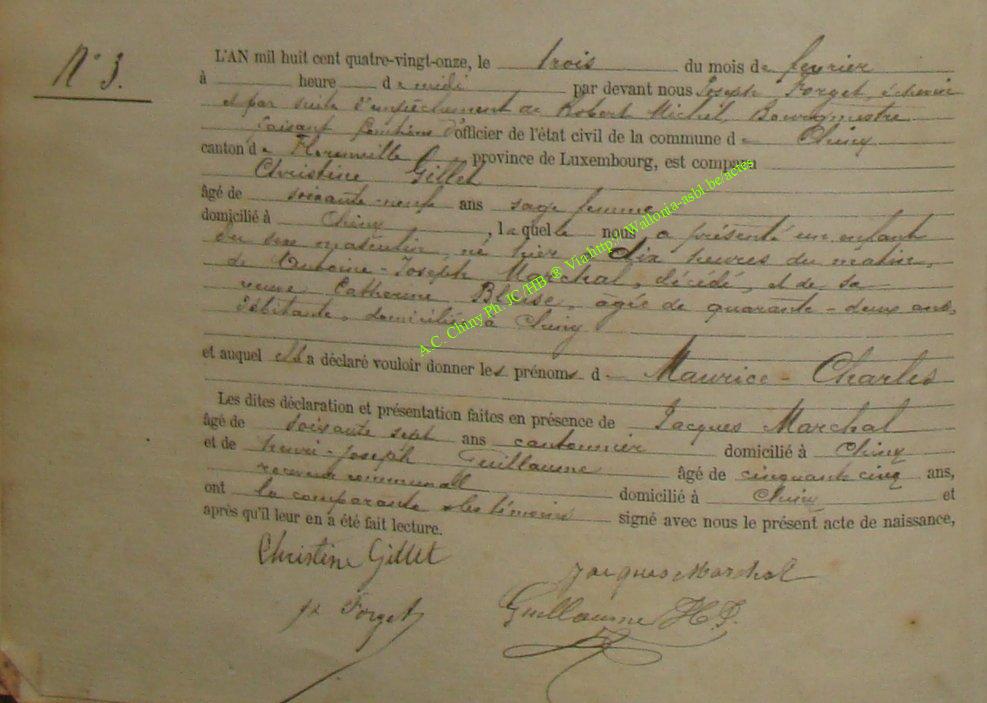 N° 3.
L'AN mil huit cent quatre-vingt-onze, le trois du mois de fevrier
à heure de midi par devant nous Joseph Forget, échevin
et par suite d'empêchement de Robert Michel, Bourgmestre
faisant fonctions d'officier de l'état civil de la commune de Chiny
canton de Florenville province de Luxembourg, est comparu
Christine Gillet
âgé de soixante-neuf ans sage femme
domicilié à Chiny, laquelle nous a présenté un enfant
du sexe masculin, né hier dix heures du matin,
de Antoine-Joseph Marchal, décédé, et de sa
veuve Catherine Blaise, agée de quarante-deux ans,
débitante, domiciliée à Chiny
et auquel elle a déclaré vouloir donner les prénoms de Maurice-Charles
Les dites déclaration et présentation faites en présence de Jacques Marchal
âgé de soixante sept ans cantonnier domicilié à Chiny
et de henri-Joseph Guillaume âgé de cinquante cinq ans,
receveur communal domicilié à Chiny et
ont la comparante et les témoins signé avec nous le présent acte de naissance,
après qu'il leur en a été fait lecture.
Christine Gillet
Jacques Marchal
Forget
Guillaume H.J.
A.C. Chiny Ph. JC /HB ® Via http:\\Wallonia-asbl.be/actes